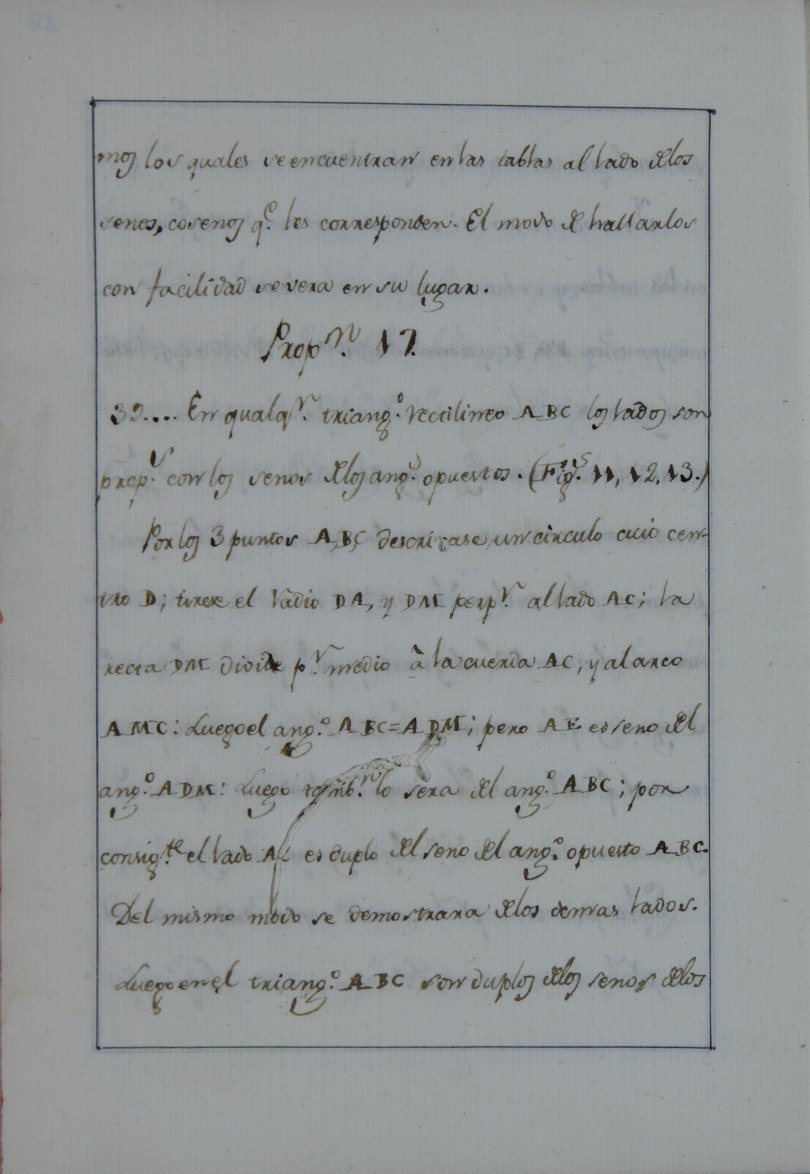 mos los quales se encuentran en las tablas al lado de los
senos, cosenos q.e les corresponden. El modo de hallarlos
con facilidad se vera en su lugar.
Prop.n 17.
39.... En qualq.r triang.o rectilineo ABC los lados son
prop.s con los senos de los ang.s opuestos. (Fig.s 11, 12, 13.)
Por los 3 puntos A,B,C descrivase un circulo cuio cen-
tro D; tirese el radio DA, y DM perp.r al lado AC; la
recta DM divide p.r medio à la cuerda AC, y al arco
AMC: Luego el ang.o ABC=ADM; pero AE es seno del
ang.o ADM: Luego tamb.n lo sera del ang.o ABC; por
consig.te el lado AC es duplo del seno del ang.o opuesto ABC.
Del mismo modo se demostrara de los demas lados.
Luego en el triang.o ABC son duplos de los senos de los